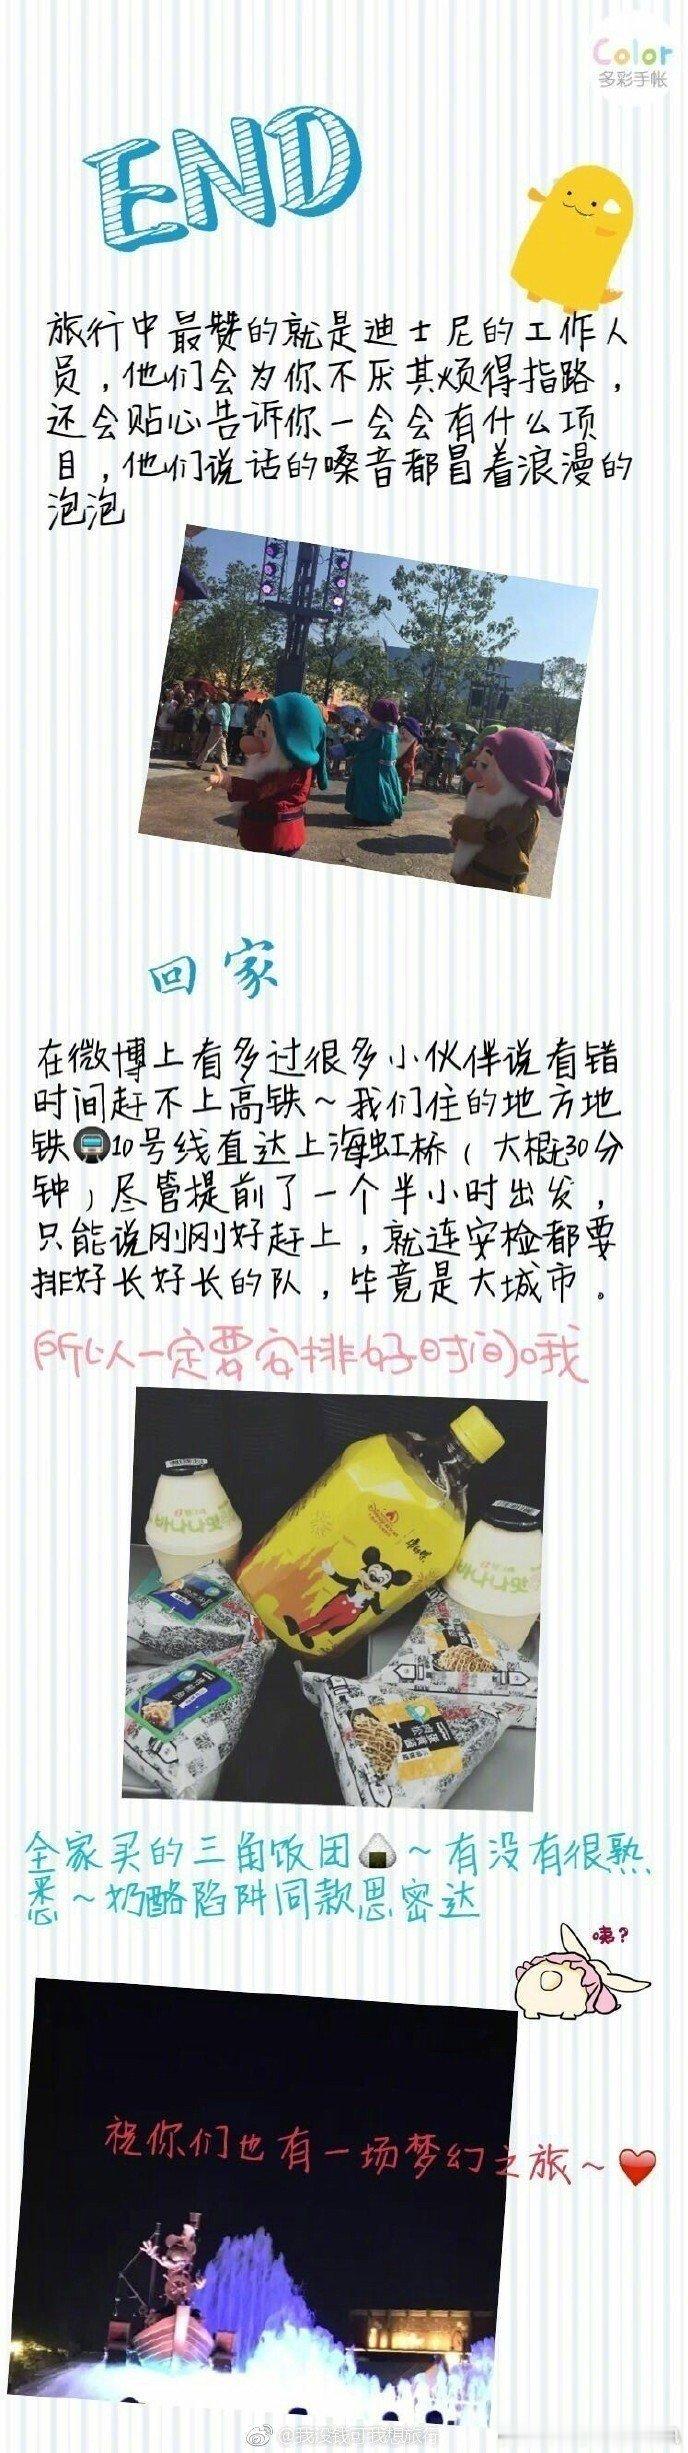 Color
多彩手帐
END
旅行中最赞的就是迪士尼的工作人
员，他们会为你不厌其烦得指路，
还会贴心告诉你一会会有什么项
目，他们说话的嗓音都冒着浪漫的
泡泡
回家
在微博上看多过很多小伙伴说看错
时间赶不上高铁～我们住的地方地
铁🚇10号线直达上海虹桥（大概30分
钟）尽管提前了一个半小时出发，
只能说刚刚好赶上，就连安检都要
排好长好长的队，毕竟是大城市。
所以一定要安排好时间哦
바나나맛
康师傅
바나나맛
全家买的三角饭团🍙～有没有很熟
悉～奶酪陷阱同款思密达
咦？
祝你们也有一场梦幻之旅～❤
@我没钱可我想旅行